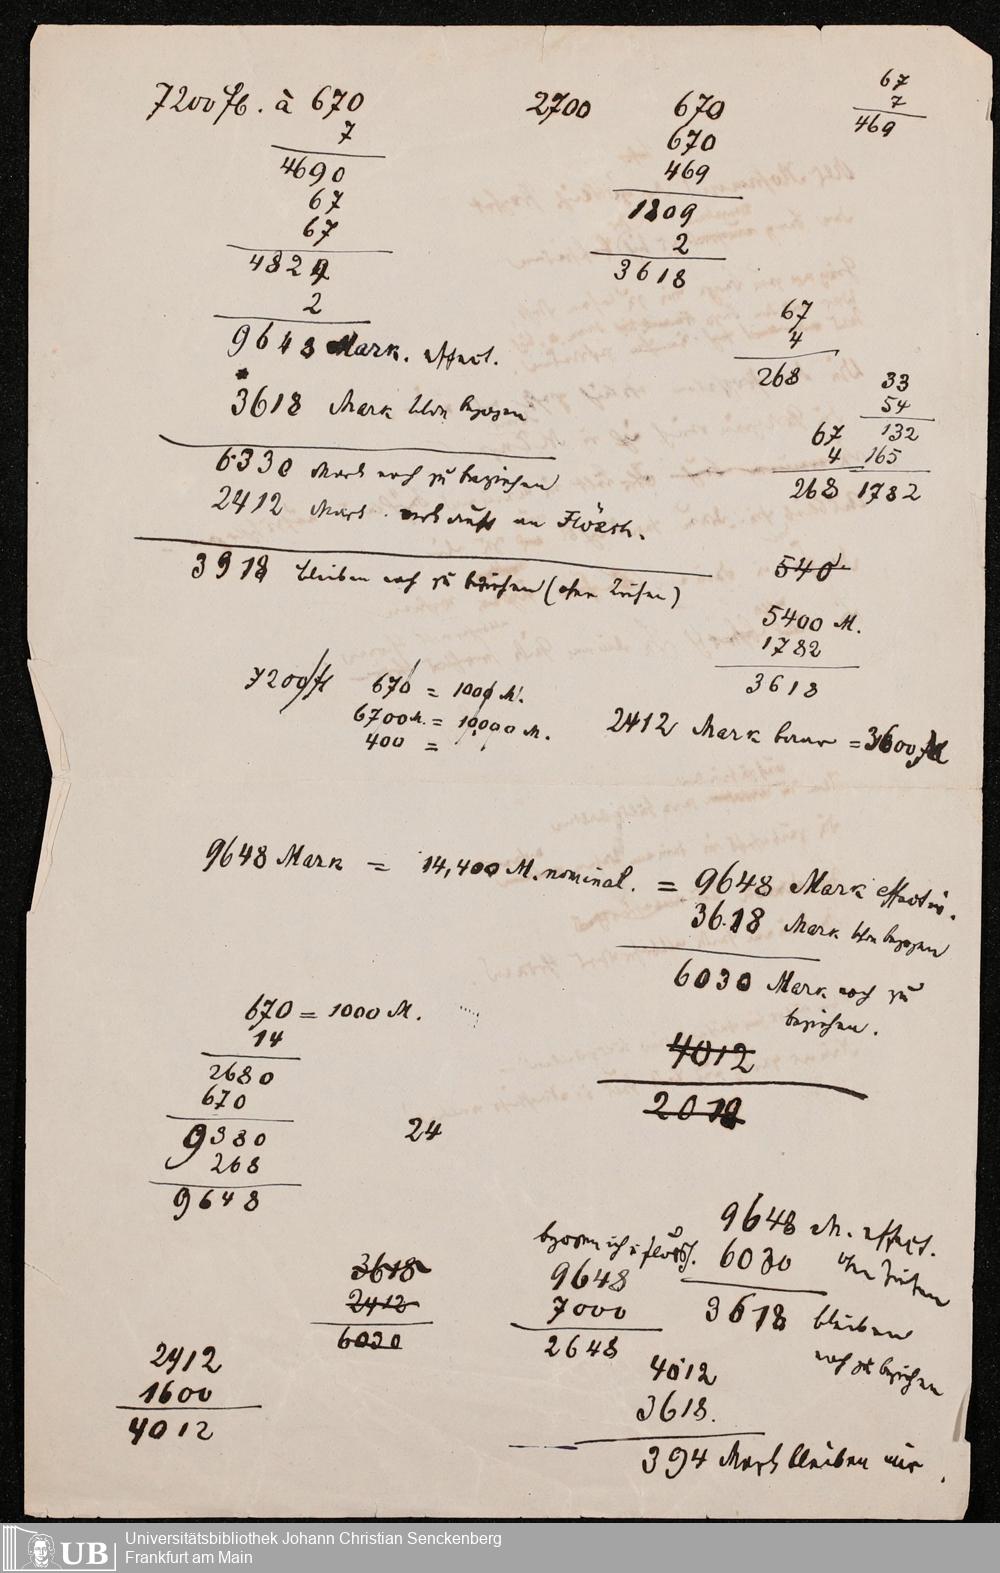 7200 fl. à 670
7
4690
67
67
4824
2
9648 Mark. effect.
3618 Mark schon bezogen
6330 Mark noch zu beziehen
2412 Mark verkauft an Flörsh.
3918 bleiben noch zu beziehen (ohne Zinsen)
2700
670
670
469
1809
2
3618
67
7
469
67
4
268
33
54
132
165
1782
67
4
268
540
5400 M.
1782
3618
7200 fl
670 = 1000 M.
6700 M. = 10,000 M.
400 =
2412 Mark = 3600 M
9648 Mark = 14,400 M. nominal. = 9648 Mark effectiv.
3618 Mark schon bezogen
6030 Mark noch zu
beziehen.
4012
2018
670 = 1000 M.
14
2680
670
9380
268
9648
24
3618
2412
6030
2412
1600
4012
bezogen ich u Flörsh.
9648
7000
2648
4012
3618.
394 Mark bleiben mir.
9648 M. effect.
6030 ohne Zinsen
3618 bleiben
noch zu beziehen
Universitätsbibliothek Johann Christian Senckenberg
Frankfurt am Main
UB